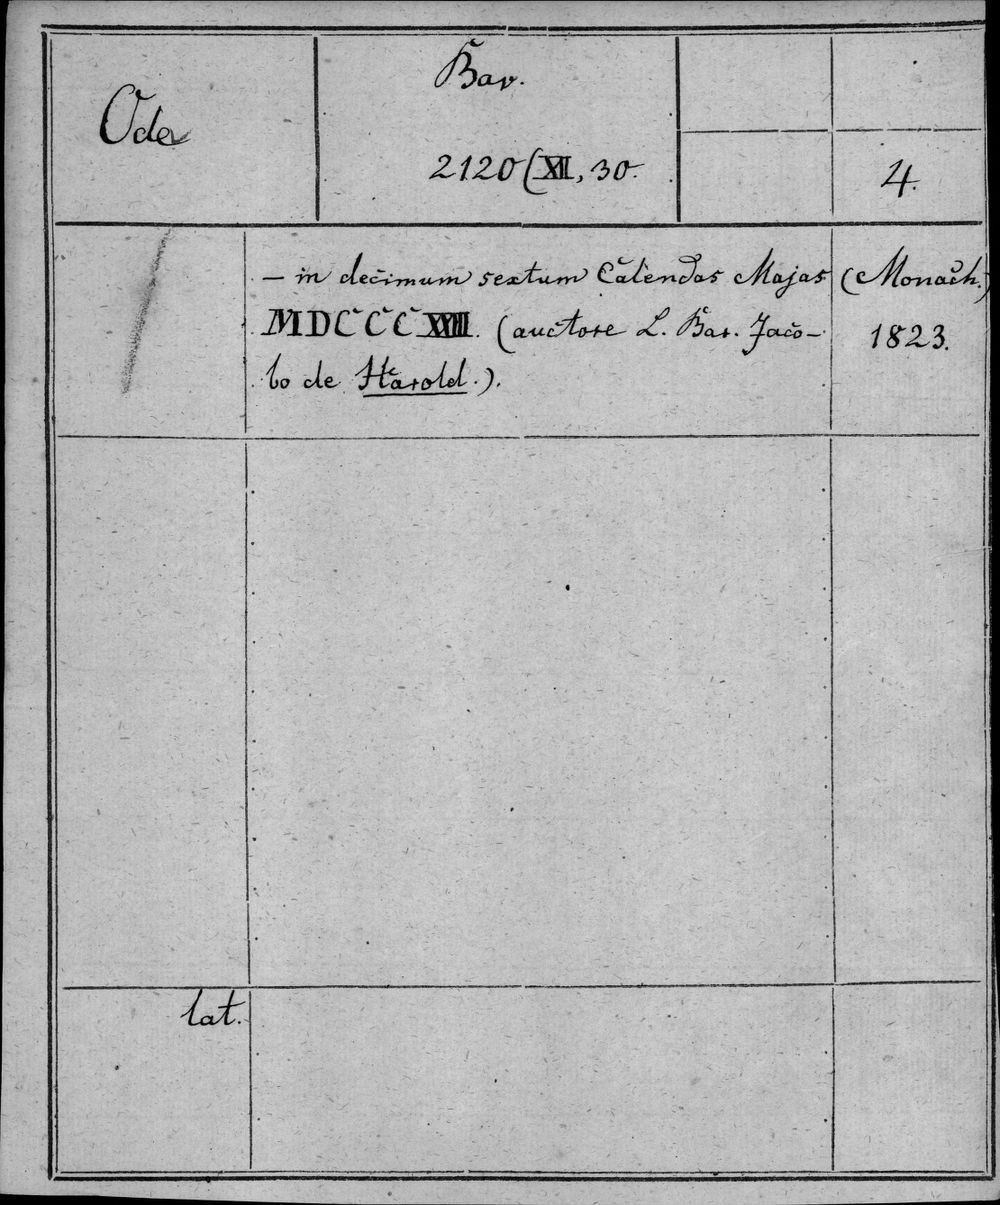 Ode
Bav.
2120 (XII, 30.
4.
– in decimum sextum Calendas Majas
MDCCCXXIII. (auctore L. Bar. Jaco-
bo de Harold.).
(Monach.)
1823.
lat.